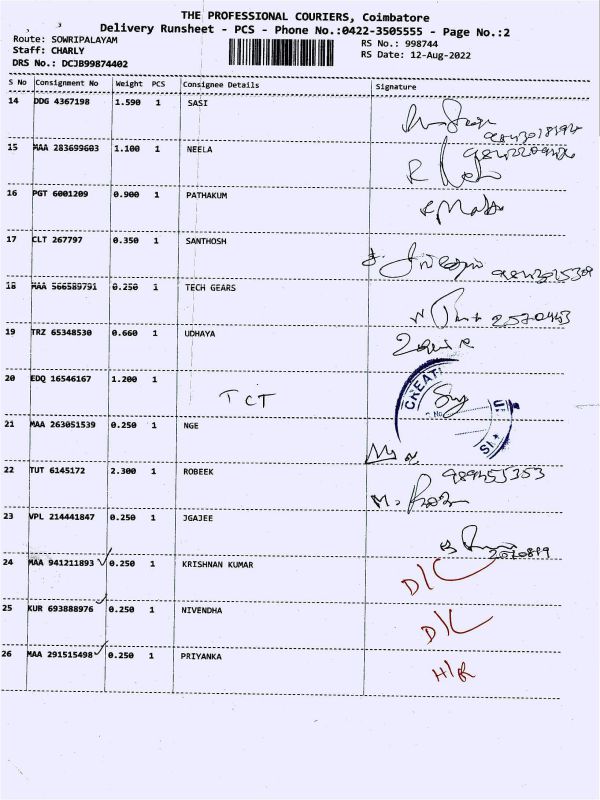 THE PROFESSIONAL COURIERS, Coimbatore
Delivery Runsheet - PCS - Phone No.:0422-3505555 - Page No.:2
Route: SOWRIPALAYAM
Staff: CHARLY
DRS No.: DCJB99874402
RS No.: 998744
RS Date: 12-Aug-2022
S No Consignment No Weight PCS Consignee Details Signature
14 DDG 4367198 1.590 1 SASI
15 MAA 283699603 1.100 1 NEELA
16 PGT 6001209 0.900 1 PATHAKUM
17 CLT 267797 0.350 1 SANTHOSH
18 MAA 566589791 0.250 1 TECH GEARS
19 TRZ 65348530 0.660 1 UDHAYA
20 EDQ 16546167 1.200 1 TCT
CREATI
21 MAA 263051539 0.250 1 NGE
22 TUT 6145172 2.300 1 ROBEEK
23 VPL 214441847 0.250 1 JGAJEE
24 MAA 941211893 0.250 1 KRISHNAN KUMAR D/C
25 KUR 693888976 0.250 1 NIVENDHA
26 MAA 291515498 0.250 1 PRIYANKA